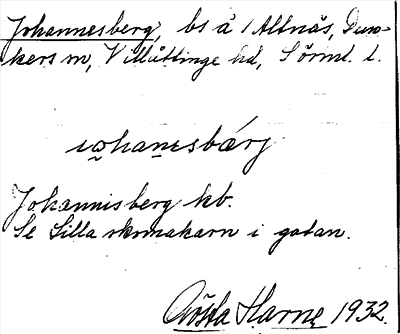 Johannesberg, bs å 1 Alltnäs, Dun-
kers sn, Villåttinge hd, Sörml. l.
johanesbárj
Johannisberg kb.
Se Lilla skomakarn i gatan.
Gösta Harne 1932.